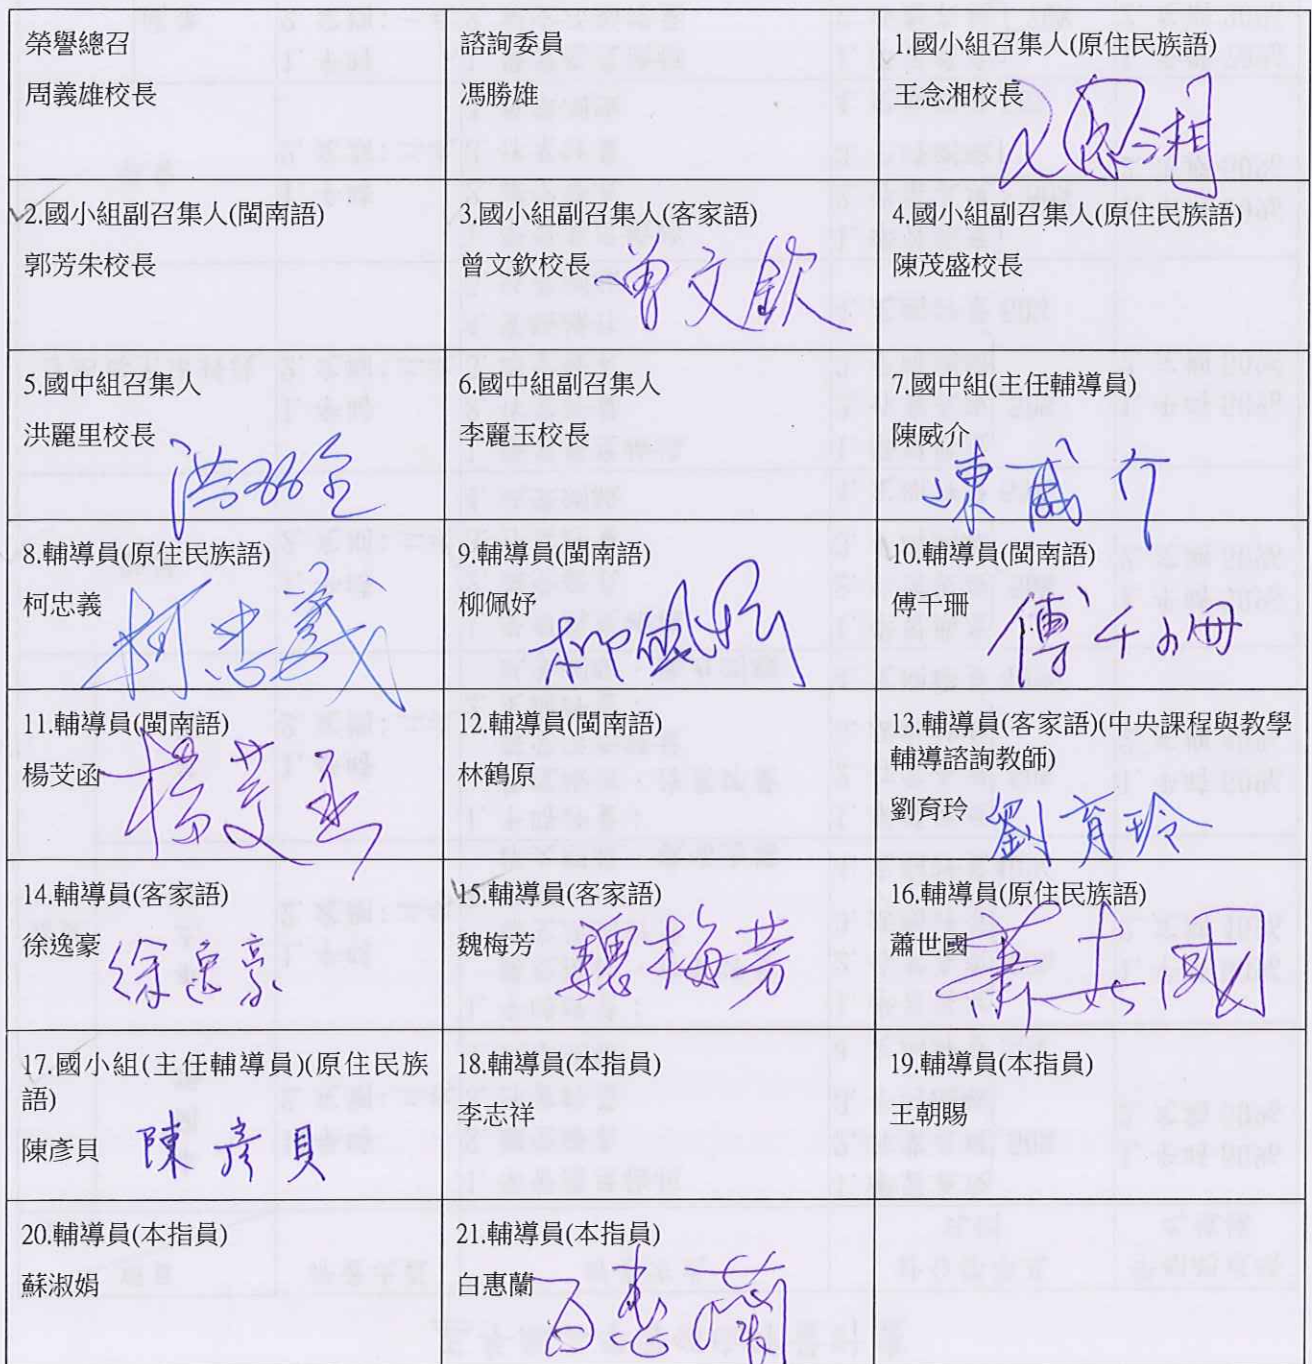 榮譽總召
周義雄校長
諮詢委員
馮勝雄
1.國小組召集人(原住民族語)
王念湘校長
2.國小組副召集人(閩南語)
郭芳朱校長
3.國小組副召集人(客家語)
曾文欽校長 曾文欽
4.國小組副召集人(原住民族語)
陳茂盛校長
5.國中組召集人
洪麗里校長
6.國中組副召集人
李麗玉校長
7.國中組(主任輔導員)
陳威介
陳威介
8.輔導員(原住民族語)
柯忠義 柯忠義
9.輔導員(閩南語)
柳佩妤 柳佩妤
10.輔導員(閩南語)
傅千珊 傅千珊
11.輔導員(閩南語)
楊芠函 楊芠函
12.輔導員(閩南語)
林鶴原
13.輔導員(客家語)(中央課程與教學
輔導諮詢教師)
劉育玲 劉育玲
14.輔導員(客家語)
徐逸豪 徐逸豪
15.輔導員(客家語)
魏梅芳 魏梅芳
16.輔導員(原住民族語)
蕭世國 蕭世國
17.國小組(主任輔導員)(原住民族
語)
陳彥貝 陳彥貝
18.輔導員(本指員)
李志祥
19.輔導員(本指員)
王朝賜
20.輔導員(本指員)
蘇淑娟
21.輔導員(本指員)
白惠蘭 白惠蘭